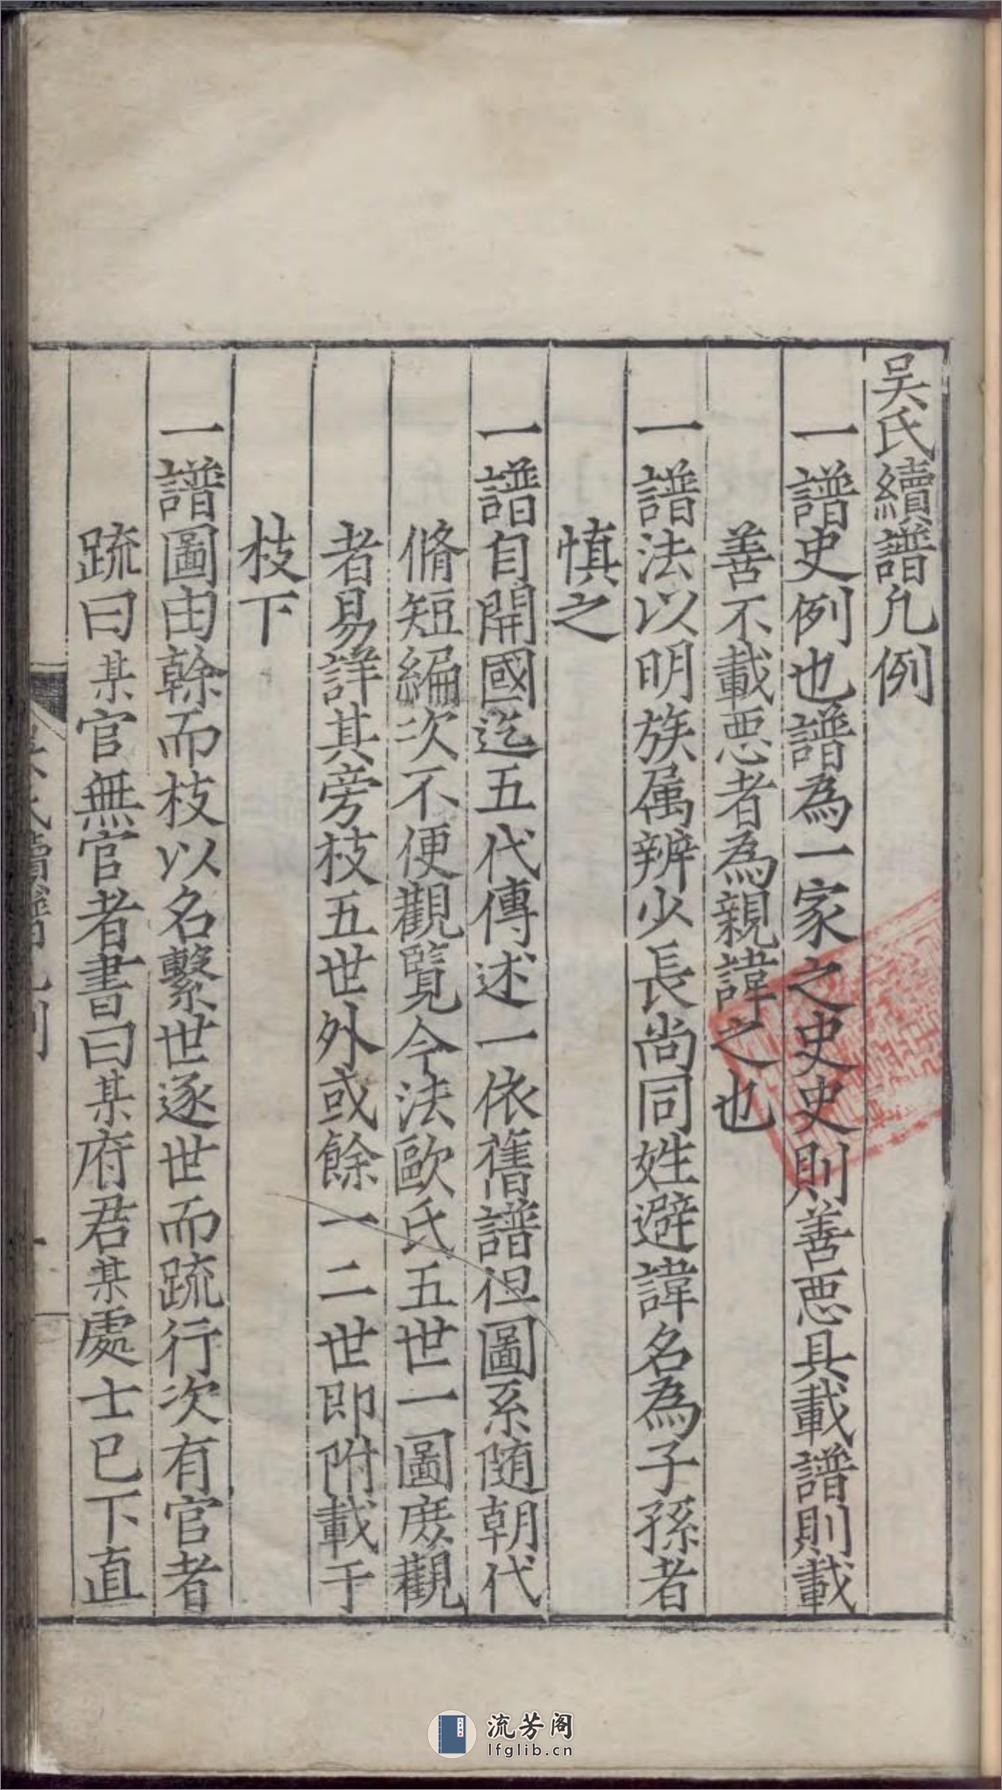 吴氏續譜凡例
一譜史例也譜為一家之史史則善惡具載譜則載
善不載惡者為親諱之也
一譜法以明族属辨少長尚同姓避諱名為子孫者
慎之
一譜自開國迄五代傳述一依舊譜但圖系随朝代
脩短編次不便觀覽今法歐氏五世一圖庻觀
者易詳其旁枝五世外或餘一二世即附載于
枝下
一譜圖由幹而枝以名繫世逐世而䟽行次有官者
䟽曰某官無官者書曰某府君某處士已下直
流芳阁
lfglib.cn